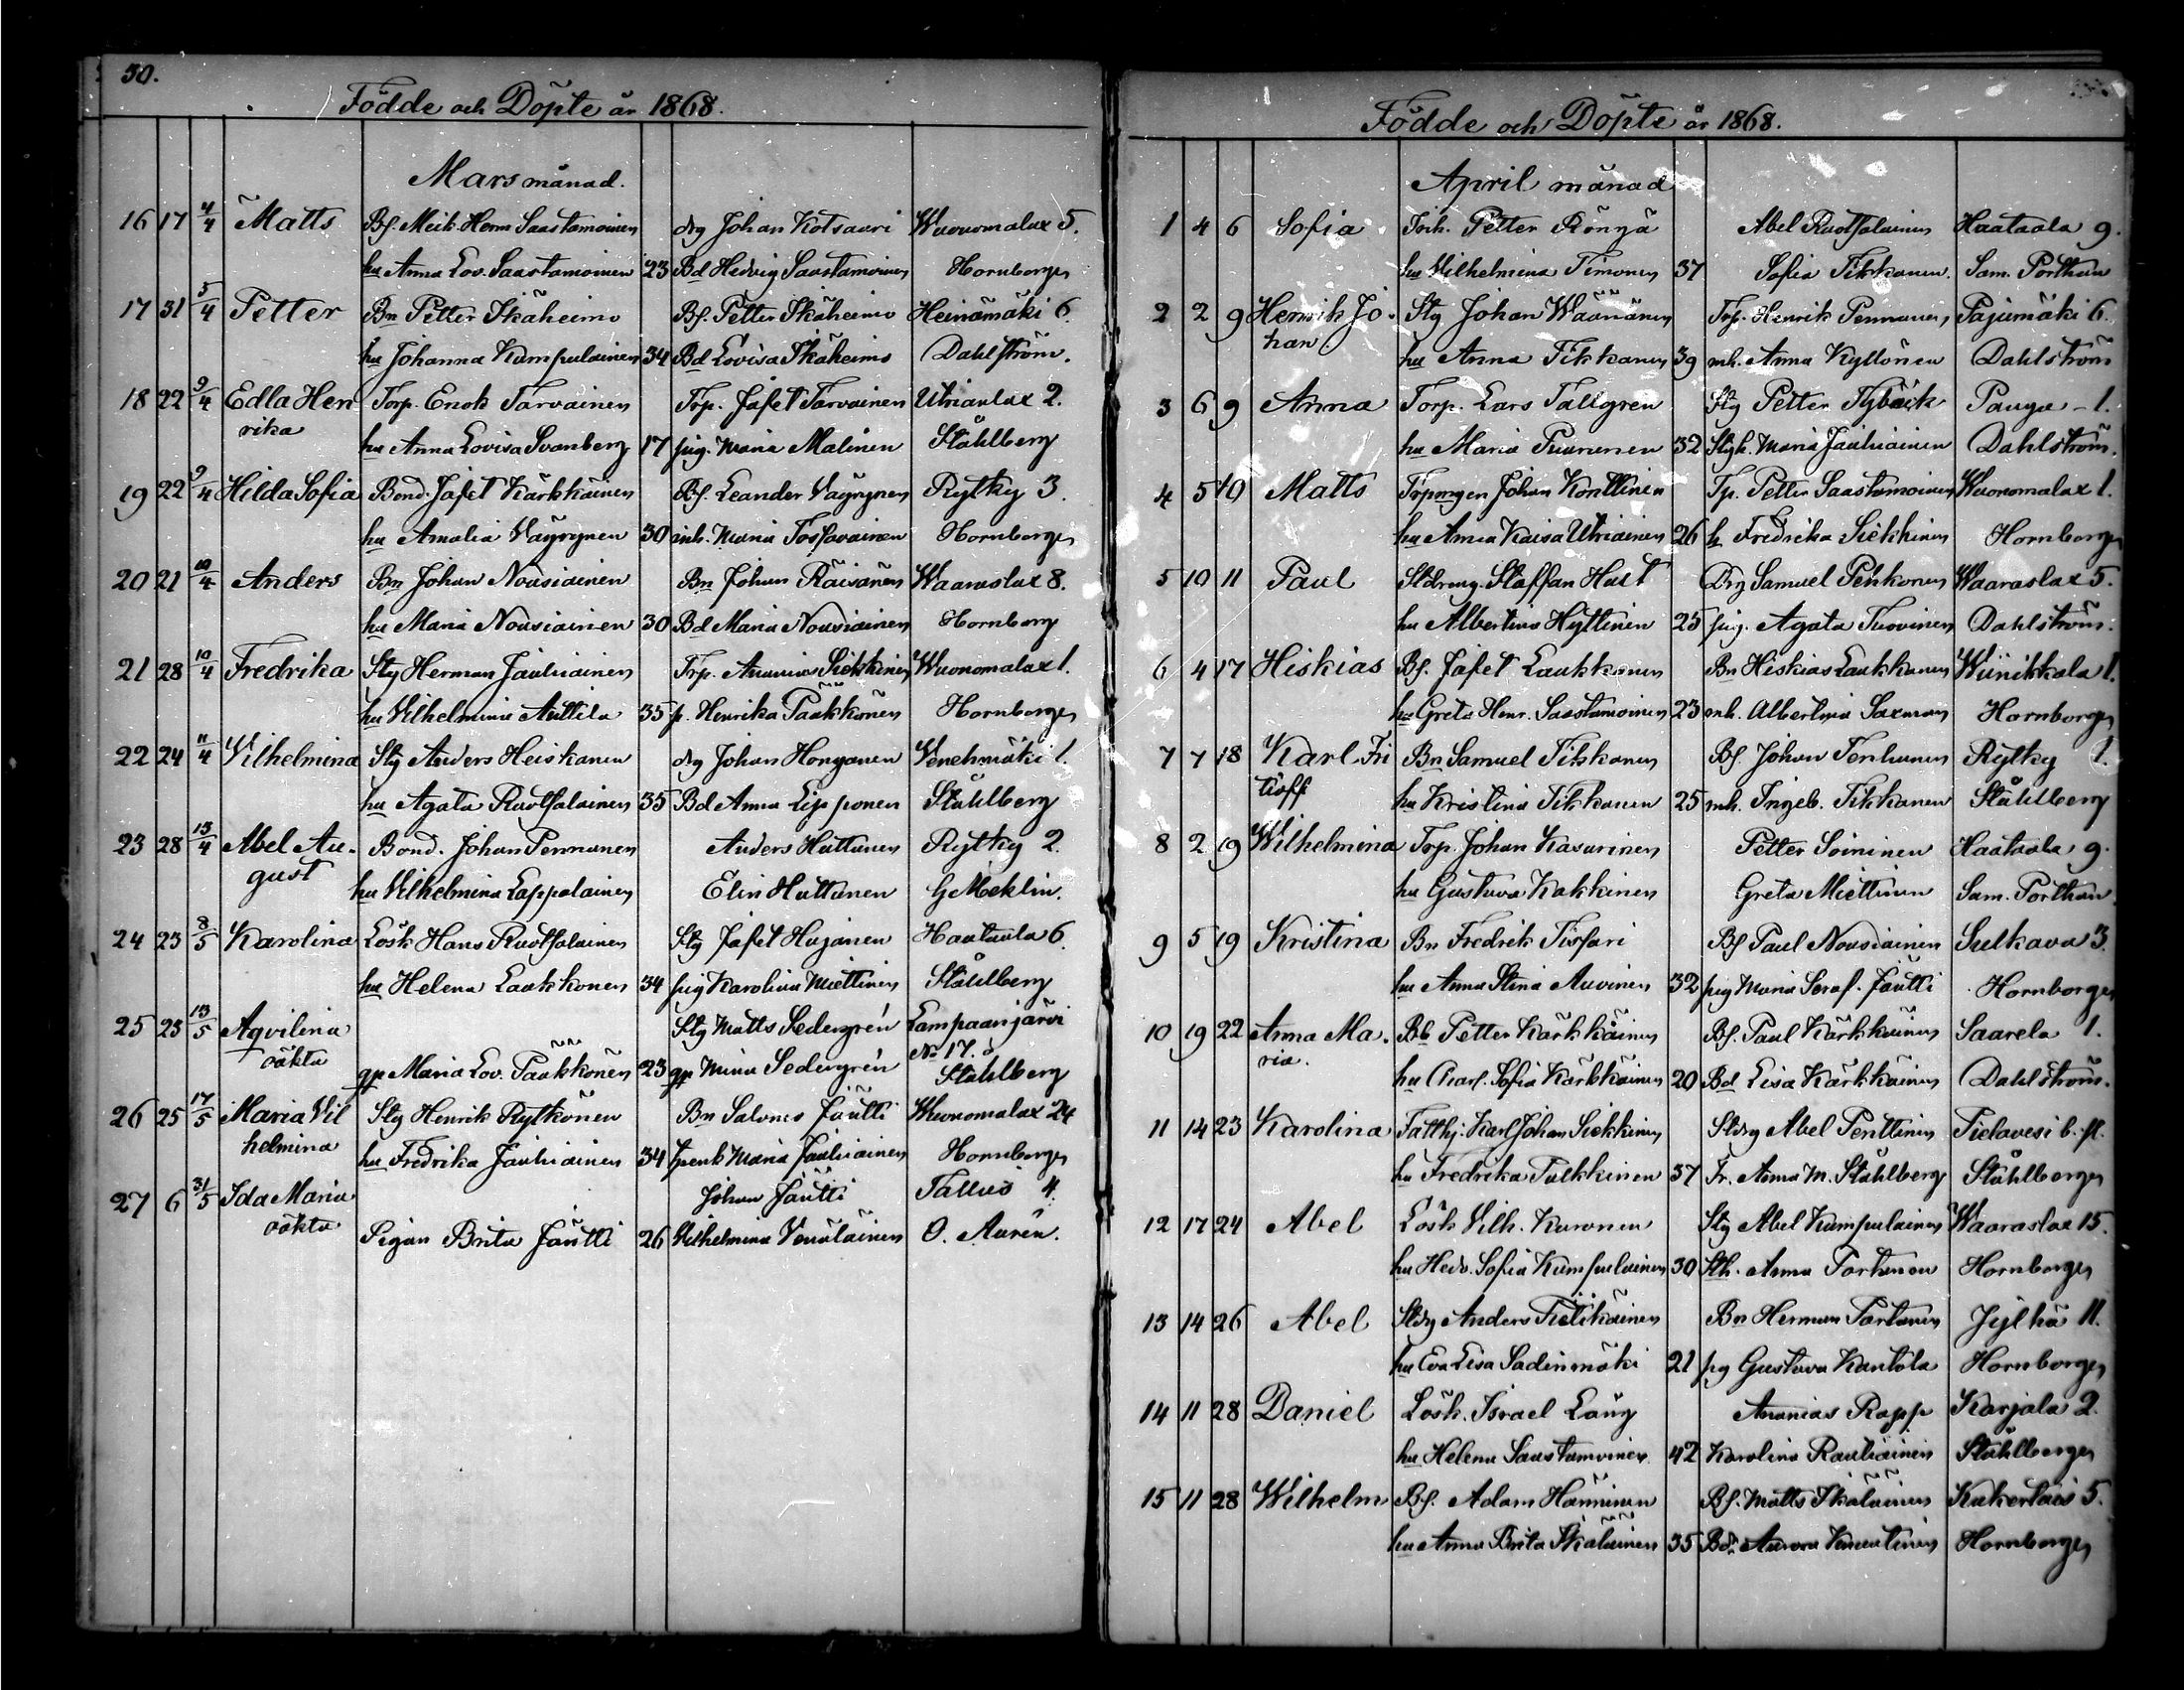 30.
Födde och Döpte år 1868.
Mars månad.
16 17 4/4 Matts Bf. Meik. Herm Saastamoinen drg Johan Kotsauri Wuonomalax 5.
hu Anna Lov. Saastamoinen 23 Bd Hedvig Saastamoinen Hornborg
17 31 5/4 Petter Bn Petter Ikäheimo Bf. Petter Ikäheimo Heinämäki 6
hu Johanna Kumpulainen 34 Bd Lovisa Ikäheimo Dahlström.
18 22 9/4 Edla Hen Torp. Enok Tarvainen Trp. Jafet Tarvainen Utrianlax 2.
rika hu Anna Lovisa Svanberg 17 pig. Maria Malinen Ståhlberg
19 22 9/4 Hilda Sofia Bond. Jafet Kärkkäinen Bf. Leander Väyrynen Rytky 3.
hu Amalia Väyrynen 30 inh. Maria Tossavainen Hornborg
20 21 10/4 Anders Bn Johan Nousiainen Bn Johan Räisänen Waaraslax 8.
hu Maria Nousiainen 30 Bd Maria Nousiainen Hornborg
21 28 10/4 Fredrika Stg Herman Jauhiainen Trp. Ananias Siekkinen Wuonomalax 1.
hu Vilhelmina Anttila 35 p. Henrika Pääkkönen Hornborg
22 24 11/4 Vilhelmina Stg Anders Heiskanen drg Johan Honganen Venehmäki 1.
hu Agata Ruotsalainen 35 Bd Anna Lipponen Ståhlberg
23 28 13/4 Abel Au- Bond. Johan Pennanen Anders Huttunen Rytky 2.
gust hu Vilhelmina Lappalainen Elin Huttunen G Meklin.
24 23 8/5 Karolina Lösk Hans Ruotsalainen Stg Jafet Hujanen Haataala 6.
hu Helena Laukkonen 34 pig Karolina Miettinen Ståhlberg
25 23 13/5 Aqvilina Stg Matts Sedergrén Lampaanjärvi
oäkta gp Maria Lov. Pääkkönen 23 gp Miina Sedergrén No 17. Ståhlberg
26 25 17/5 Maria Vil Stg Henrik Rytkönen Bn Salomo Jäutti Wuonomalax 24
helmina hu Fredrika Jauhiainen 34 Maria Jauhiainen Hornborg
27 6 31/5 Ida Maria Johan Jäutti Tallus 4.
oäkta Pigan Brita Jäutti 26 Vilhelmina Venäläinen O. Aurén.
Födde och Döpte år 1868.
April månad
1 4 6 Sofia Inh. Petter Rönqä Abel Ruotsalainen Haataala 9.
hu Vilhelmina Timonen 37 Sofia Tikkanen. Sam. Porthan
2 2 9 Henrik Jo- Stg Johan Wäänänen Trp. Henrik Pennanen Pajumäki 6.
han hu Anna Tikkanen 39 mh. Anna Kyllönen Dahlström
3 6 9 Anna Torp. Lars Tallgren Stg Petter Nybäck Panga - 1.
hu Maria Puranen 32 Stgh. Maria Jauhiainen Dahlström.
4 5 10 Matts Trpmgen Johan Konttinen Tp. Petter Saastamoinen Wuonomalax 1.
hu Anna Kaisa Utriainen 26 h Fredrika Siekkinen Hornborg
5 10 11 Paul Stdrmg. Staffan Hast Drg Samuel Pehkonen Waaraslax 5.
hu Albertina Hyttinen 25 pig. Agata Tuovinen Dahlström.
6 4 17 Hiskias Bf. Jafet Laukkanen Bn Hiskias Laukkanen Wiinikkala 1.
hu Greta Henr. Saastamoinen 23 mh. Albertina Saxman Hornborg
7 7 18 Karl Fri Bn Samuel Tikkanen Bf. Johan Tenhunen Rytky 1.
tioff hu Kristina Tikkanen 25 mh. Ingeb. Tikkanen Ståhlberg
8 2 19 Wilhelmina Trp. Johan Kasurinen Petter Soininen Haataala 9.
hu Gustava Kakkinen Greta Miettinen Sam. Porthan
9 5 19 Kristina Bn Fredrik Tissari Bf Paul Nousiainen Sulkava 3.
hu Anna Stina Auvinen 32 pig Maria Seraf. Jäutti Hornborg
10 19 22 Anna Ma- Bb Petter Kärkkäinen Bf. Paul Kärkkäinen Saarela 1.
ria. hu Charl. Sofia Kärkkäinen 20 Bd Lisa Kärkkäinen Dahlström.
11 14 23 Karolina Fatthj. Karl Johan Siekkinen Stdrg Abel Penttinen Pielavesi b. pl.
hu Fredrika Pulkkinen 37 Fr. Anna M. Ståhlberg Ståhlberg
12 17 24 Abel Lösk Vilh. Kuronen Stg Abel Kumpulainen Waaraslax 15.
hu Hedv. Sofia Kumpulainen 30 Sth. Anna Partanen Hornborg
13 14 26 Abel Stdrg Anders Tiilikainen Bn Herman Partanen Jylhä 11.
hu Eva Lisa Sadinmäki 21 pg Gustava Kantola Hornborg
14 11 28 Daniel Lösk. Israel Lång Ananias Rapp Karjala 2.
hu Helena Saastamoinen 42 Karolina Rautiainen Ståhlberg
15 11 28 Wilhelm Bf. Adam Hänninen Bf. Matts Ikäläinen Kukerlaks 5.
hu Anna Brita Ikäläinen 35 Bd. Aurora Hornborg